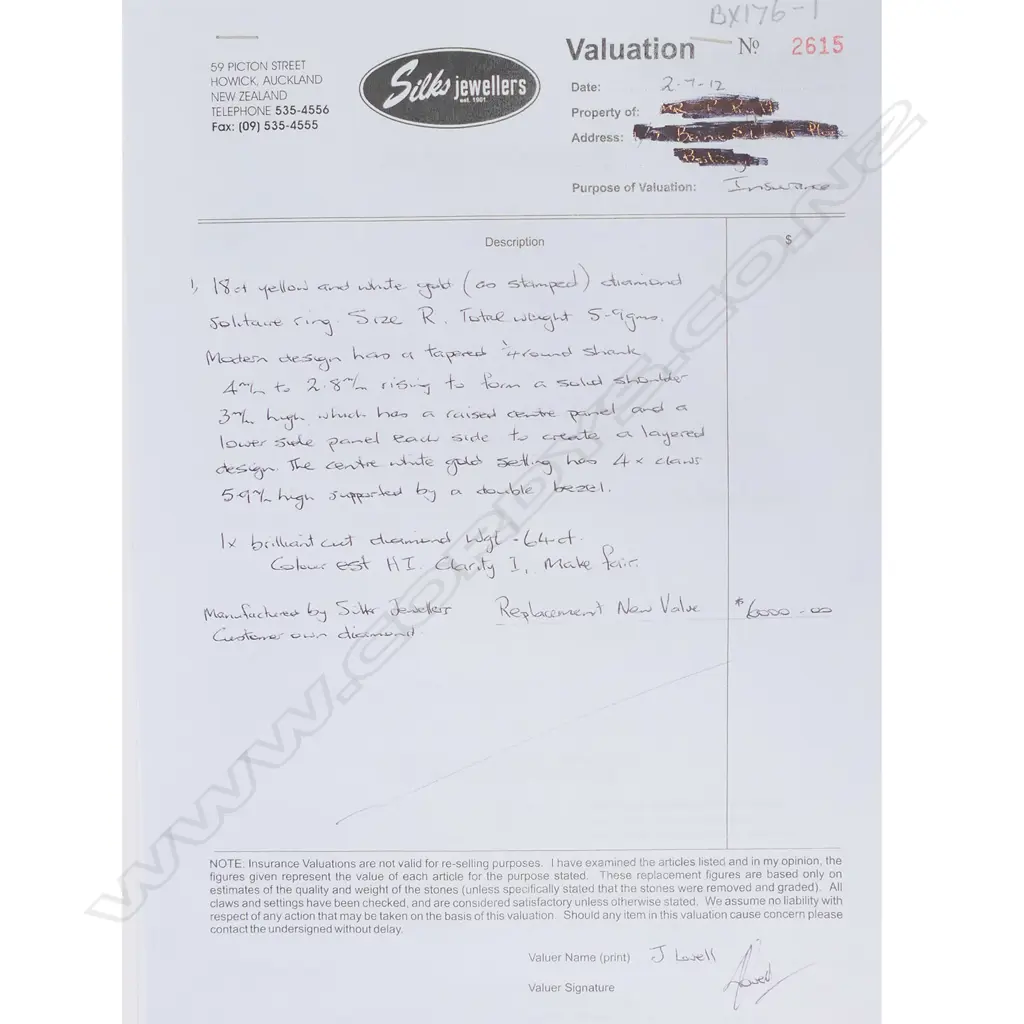 BX176-1
59 PICTON STREET
HOWICK, AUCKLAND
NEW ZEALAND
TELEPHONE 535-4556
Fax: (09) 535-4555
Silks jewellers
est. 1901
Valuation Nº 2615
Date: 2-7-12
Property of:
Address:
Purpose of Valuation: Insurance
Description $
1, 18ct yellow and white gold (as stamped) diamond
Solitaire ring. Size R. Total weight 5.9gms.
Modern design has a tapered 3/4 round shank
4m/m to 2.8m/m rising to form a solid shoulder
3m/m high which has a raised centre panel and a
lower side panel each side to create a layered
design. The centre white gold setting has 4x claws
5.9m/m high supported by a double bezel.
1x brilliant cut diamond Wgt .64ct.
Colour est HI. Clarity I, Make fair.
Manufactured by Silks Jewellers Replacement New Value $6000.00
Customer own diamond.
NOTE. Insurance Valuations are not valid for re-selling purposes. I have examined the articles listed and in my opinion, the
figures given represent the value of each article for the purpose stated. These replacement figures are based only on
estimates of the quality and weight of the stones (unless specifically stated that the stones were removed and graded). All
claws and settings have been checked, and are considered satisfactory unless otherwise stated. We assume no liability with
respect of any action that may be taken on the basis of this valuation. Should any item in this valuation cause concern please
contact the undersigned without delay.
Valuer Name (print) J Lovell
Valuer Signature
WWW.CORDYS.CO.NZ